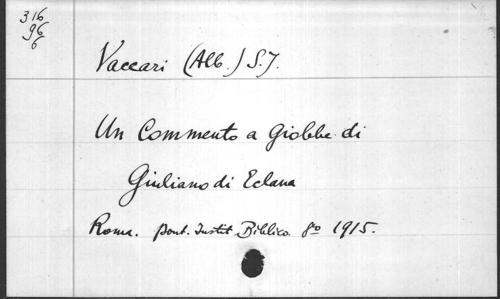 316
96
6
Vaccari (Alb.) S.J.
Un Commento a Giobbe di
Giuliano di Eclana
Roma. Pont. Instit Biblico 8º 1915.